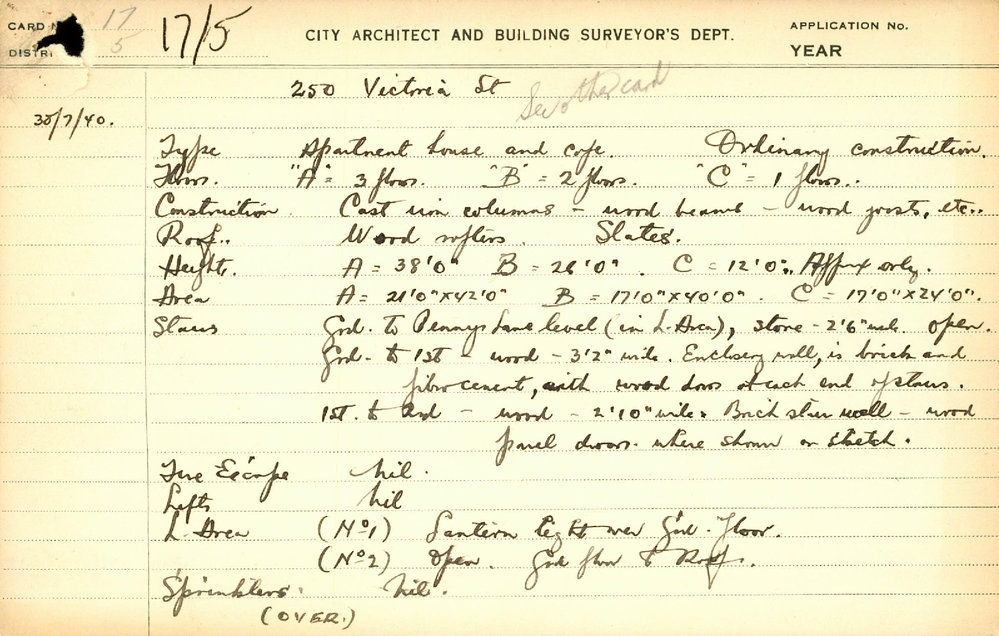 CARD N 17 17/5 CITY ARCHITECT AND BUILDING SURVEYOR'S DEPT. APPLICATION No.
DISTRI 5 YEAR
250 Victoria St See other card
30/7/40.
Type Apartment house and cafe. Ordinary construction.
Floors. "A" = 3 floors. "B" = 2 floors. "C" = 1 floor..
Construction Cast iron columns – wood beams – wood joists, etc..
Roof.. Wood rafters. Slates.
Height. A = 38'0" B = 26'0". C = 12'0". Approx only.
Area A = 21'0"x42'0" B = 17'0"x40'0". C = 17'0"x24'0".
Stairs Grd. to Pennys Lane level (in L-Area), stone – 2'6" wide. open.
Grd – to 1st – wood – 3'2" wide. Enclosing wall, is brick and
fibro cement, with wood doors at each end of stairs.
1st. to 2nd – wood – 2'10" wide. Brick stair well – wood
panel doors. where shown on sketch.
Fire Escape Nil.
Lifts Nil
L-Area (No1) Lantern light over Grd. Floor.
(No2) Open. Grd floor to Roof.
Sprinklers. Nil.
(OVER.)